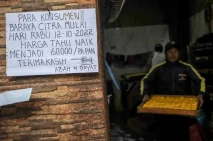 PARA KONSUMEN
BARAYA CITRA MULAI
HARI RABU 12-10-2022
HARGA TAHU NAIK
MENJADI 60000/PAPAN
TERIMAKASIH
ABAH H DAYAT